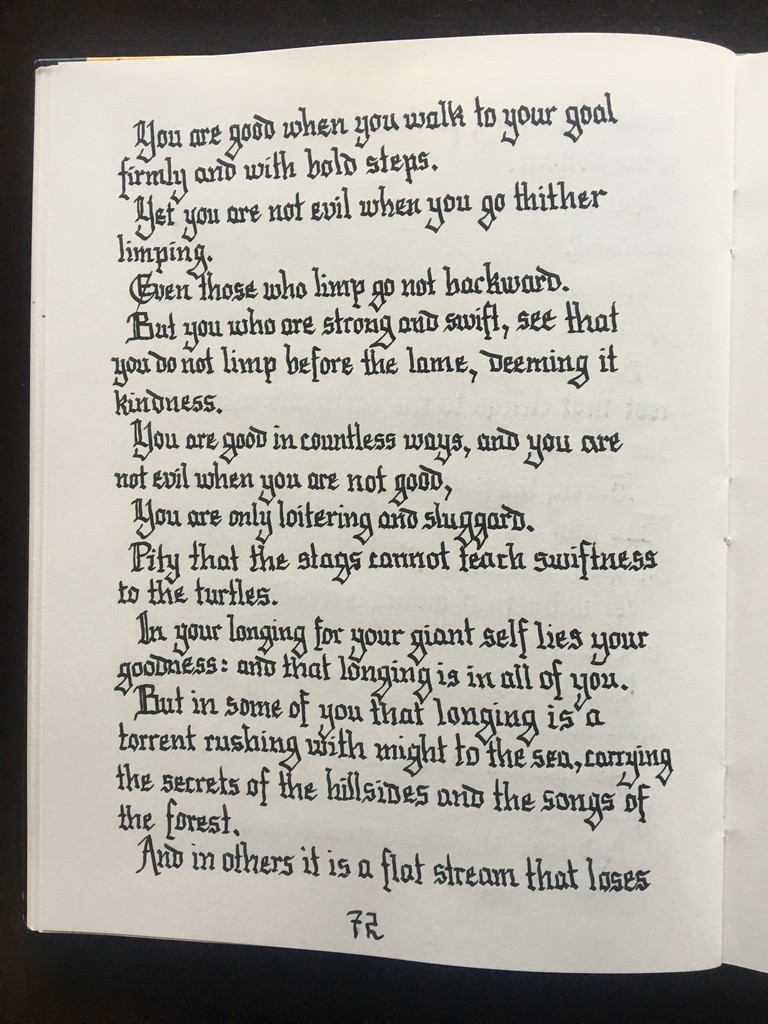 You are good when you walk to your goal
firmly and with bold steps.
Yet you are not evil when you go thither
limping.
Even those who limp go not backward.
But you who are strong and swift, see that
you do not limp before the lame, deeming it
kindness.
You are good in countless ways, and you are
not evil when you are not good,
You are only loitering and sluggard.
Pity that the stags cannot teach swiftness
to the turtles.
In your longing for your giant self lies your
goodness: and that longing is in all of you.
But in some of you that longing is a
torrent rushing with might to the sea, carrying
the secrets of the hillsides and the songs of
the forest.
And in others it is a flat stream that loses
72